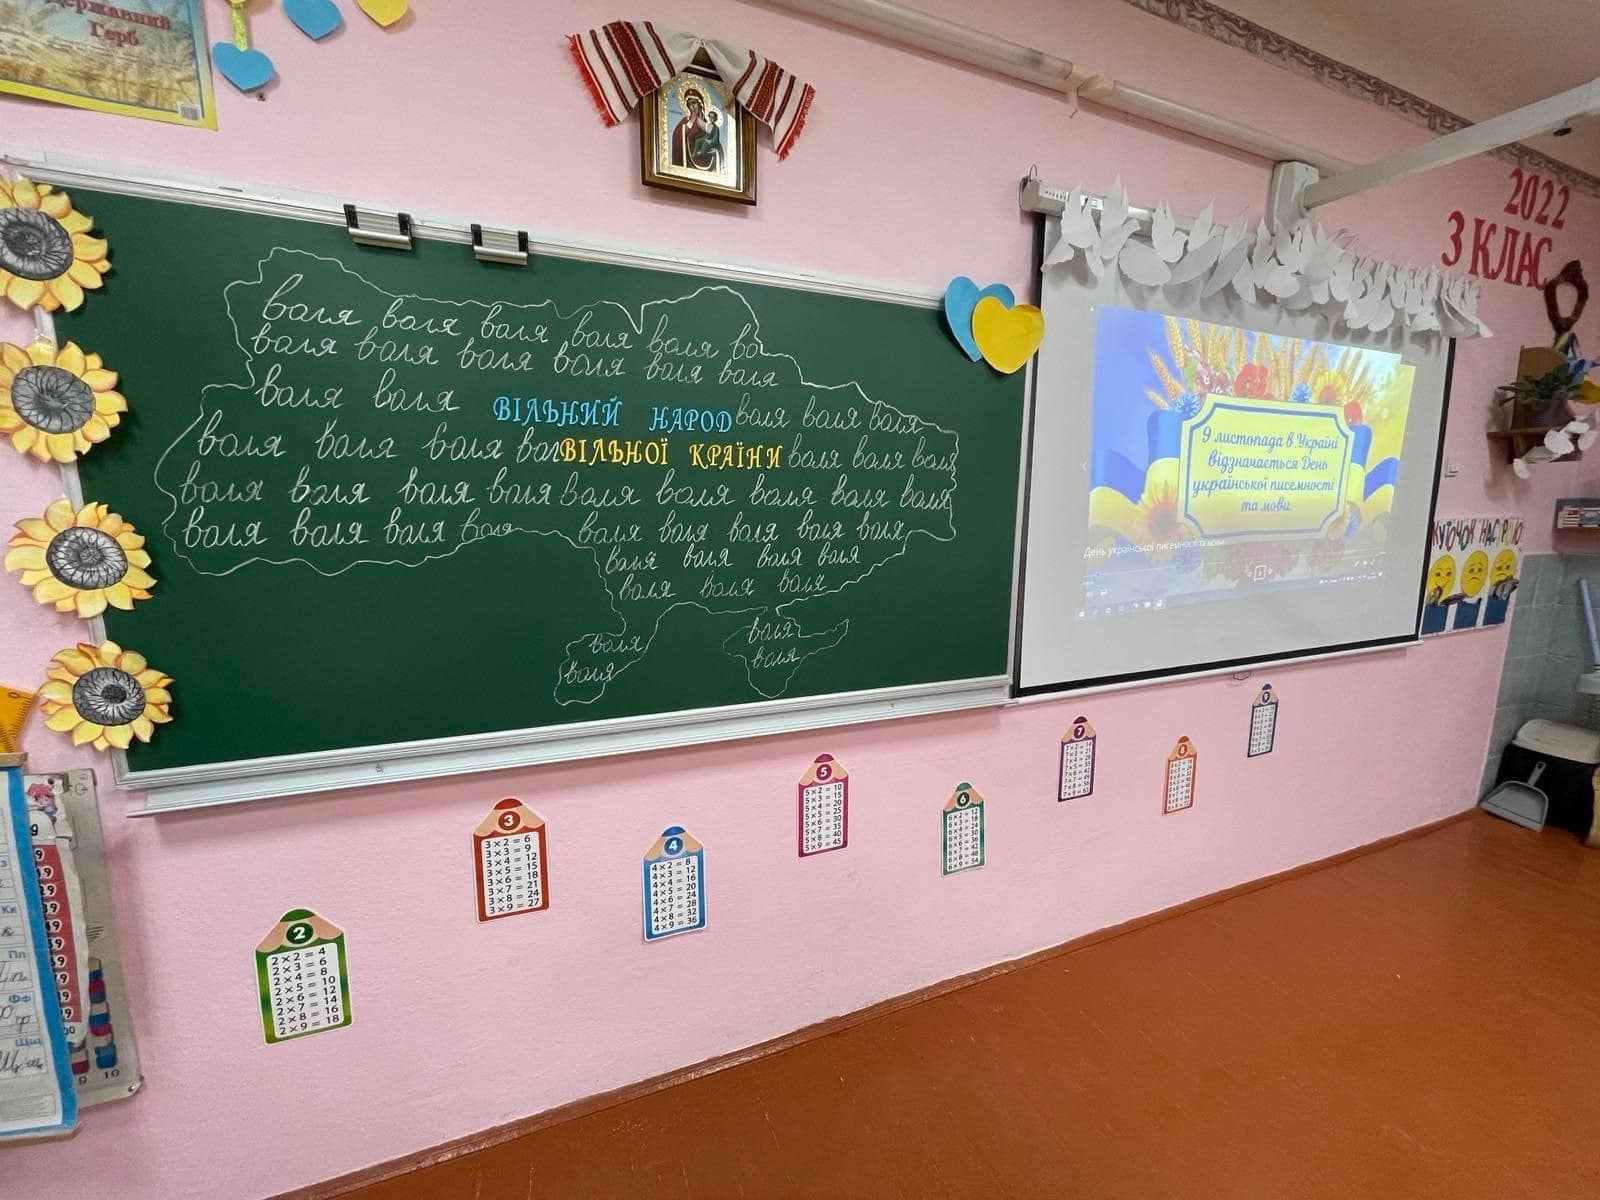 Державний
Герб
2022
3 КЛАС
воля воля воля воля воля во
воля воля воля воля воля воля
воля воля ВІЛЬНИЙ НАРОД воля воля воля
воля воля воля вол ВІЛЬНОЇ КРАЇНИ воля воля воля
воля воля воля воля воля воля воля воля воля
воля воля воля воля воля воля воля воля воля
воля воля воля воля
воля воля воля
воля воля
воля воля
9 листопада в Україні
відзначається День
української писемності
та мови.
День української писемності та мови
КУТОЧОК НАСТРОЮ
2
2 × 2 = 4
2 × 3 = 6
2 × 4 = 8
2 × 5 = 10
2 × 6 = 12
2 × 7 = 14
2 × 8 = 16
2 × 9 = 18
3
3 × 2 = 6
3 × 3 = 9
3 × 4 = 12
3 × 5 = 15
3 × 6 = 18
3 × 7 = 21
3 × 8 = 24
3 × 9 = 27
4
4 × 2 = 8
4 × 3 = 12
4 × 4 = 16
4 × 5 = 20
4 × 6 = 24
4 × 7 = 28
4 × 8 = 32
4 × 9 = 36
5
5 × 2 = 10
5 × 3 = 15
5 × 4 = 20
5 × 5 = 25
5 × 6 = 30
5 × 7 = 35
5 × 8 = 40
5 × 9 = 45
6
6 × 2 = 12
6 × 3 = 18
6 × 4 = 24
6 × 5 = 30
6 × 6 = 36
6 × 7 = 42
6 × 8 = 48
6 × 9 = 54
7
7 × 2 = 14
7 × 3 = 21
7 × 4 = 28
7 × 5 = 35
7 × 6 = 42
7 × 7 = 49
7 × 8 = 56
7 × 9 = 63
8
9
Кк
Пп
Фф
Щщ
9 10